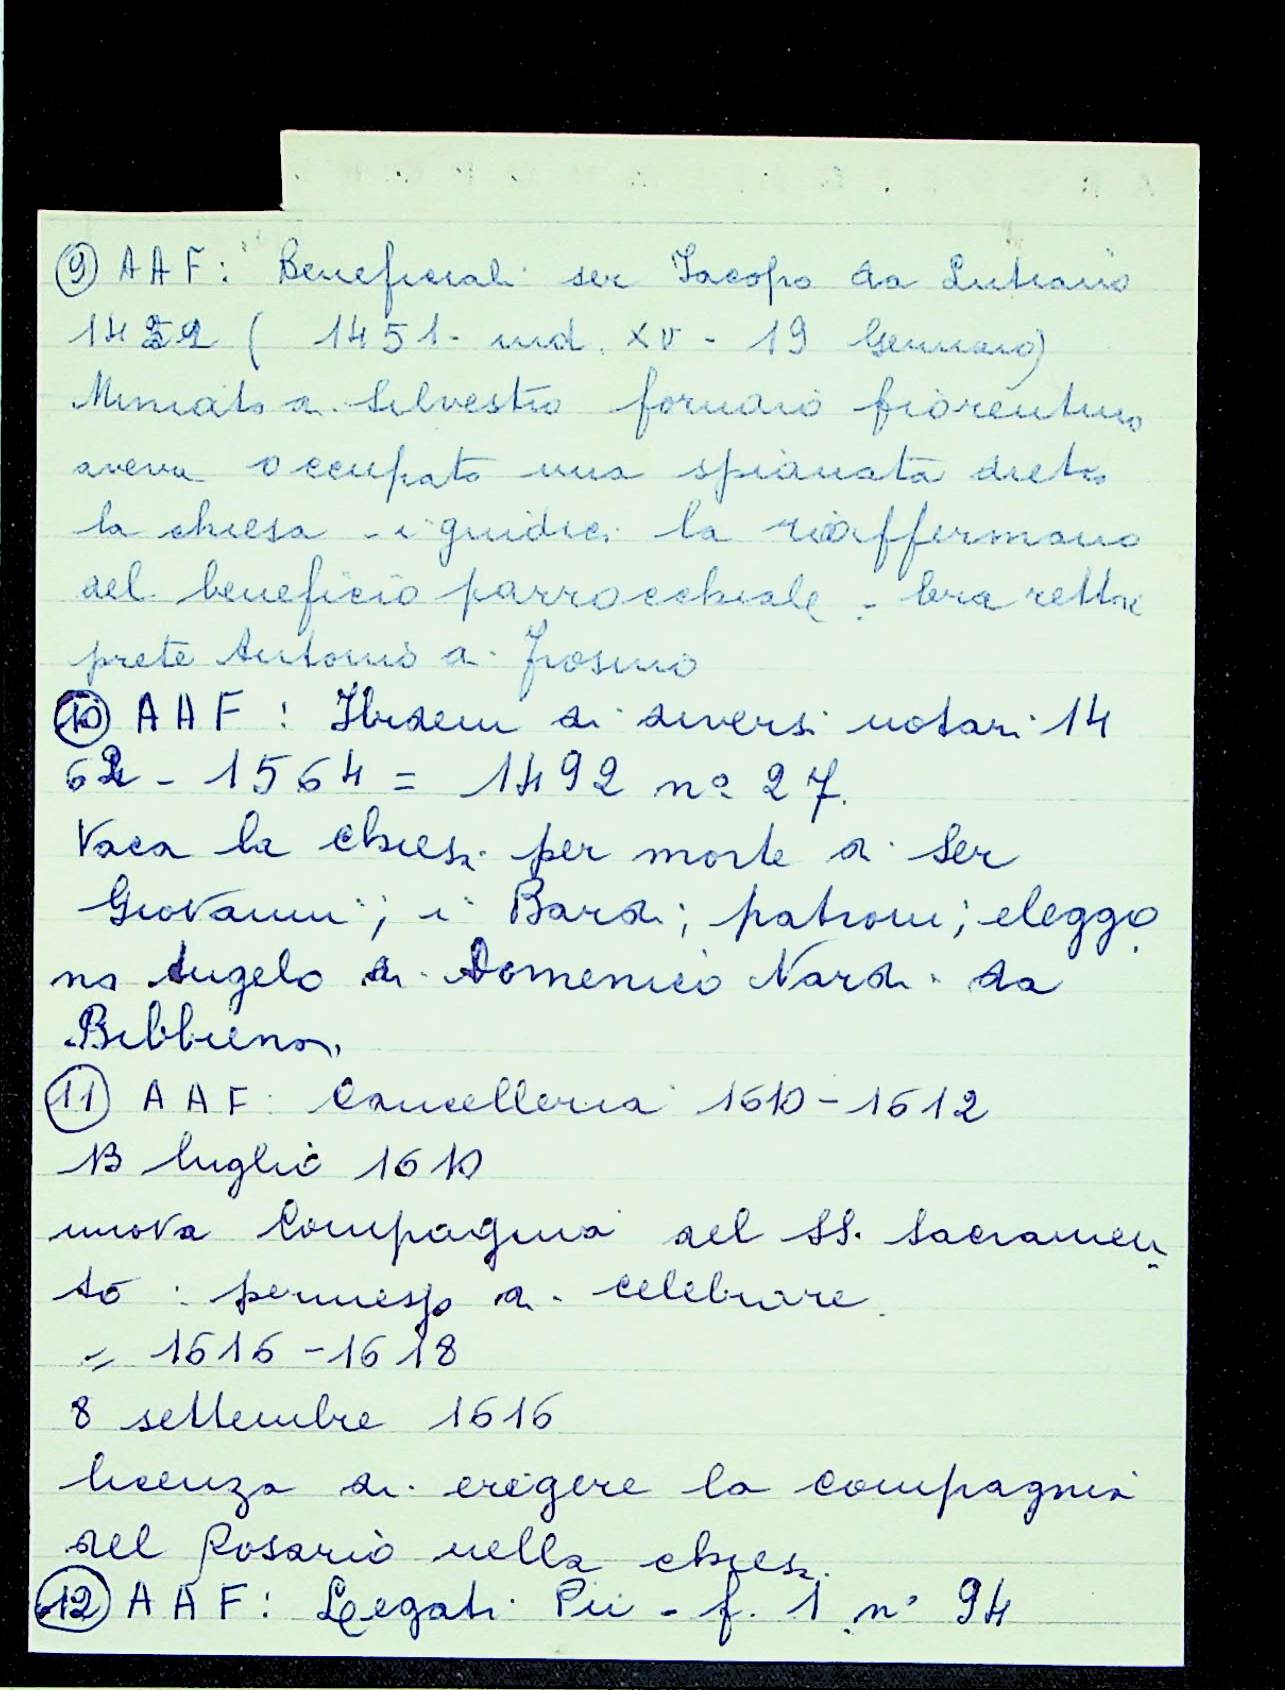 9) AAF: Beneficiali ser Jacopo da Lutiano
1452 ( 1451 - ind. XV - 19 Gennaio)
Miniato di Silvestro fornaio fiorentino
aveva occupato una spianata dietro
la chiesa - i giudici la riaffermano
del beneficio parrocchiale - Era rettore
prete Antonio di Frosino
10) AAF: Ibidem di diversi notari 14
62 - 1564 = 1492 nº 27.
Vaca la chiesa per morte di Ser
Giovanni; i Bardi; patroni; eleggo
no Angelo di Domenico Nardi da
Bibbiena.
11) AAF: Cancelleria 1610-1612
13 luglio 1610
nuova Compagnia del SS. Sacramen
to : permesso di celebrare
= 1616-1618
8 settembre 1616
licenza di erigere la compagnia
del Rosario nella chiesa.
12) AAF: Legati Pii - f. 1 nº 94